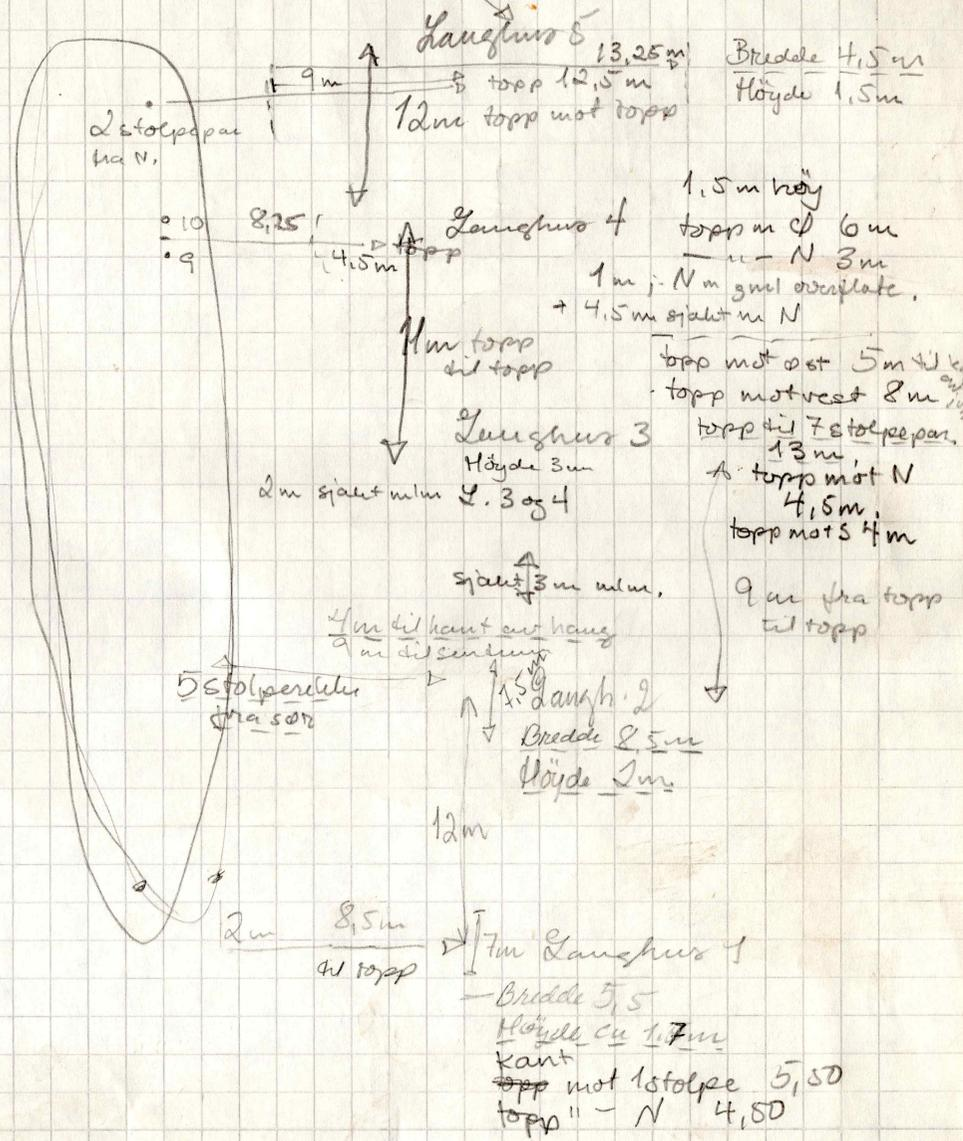 Langhus 5
13,25 m
9m
topp 12,5m
12m topp mot topp
Bredde 4,5m
Höyde 1,5m
2 stolpepar
fra N.
10
9
8,25
4,5m
topp
Langhus 4
1,5 m höy
topp m Ø 6m
— " — N 3m
1m j. N m gml overflate.
+ 4,5m sjakt m N
11m topp
til topp
topp mot øst 5m til
topp mot vest 8m
topp til 7 stolpepar.
13m
topp mot N
4,5m.
topp mot S 4m
Langhus 3
Höyde 3m
2m sjakt mlm L. 3 og 4
sjakt 3m mlm.
9m fra topp
til topp
4m til kant av haug
9m til sentrum
5 stolperekke
fra sør
7,5
Langh. 2
Bredde 8,5m
Höyde 2m.
12m
2m
8,5m
til topp
7m Langhus 1
— Bredde 5,5
Höyde ca 1.7m
kant
topp mot 1 stolpe 5,50
topp " — N 4,50